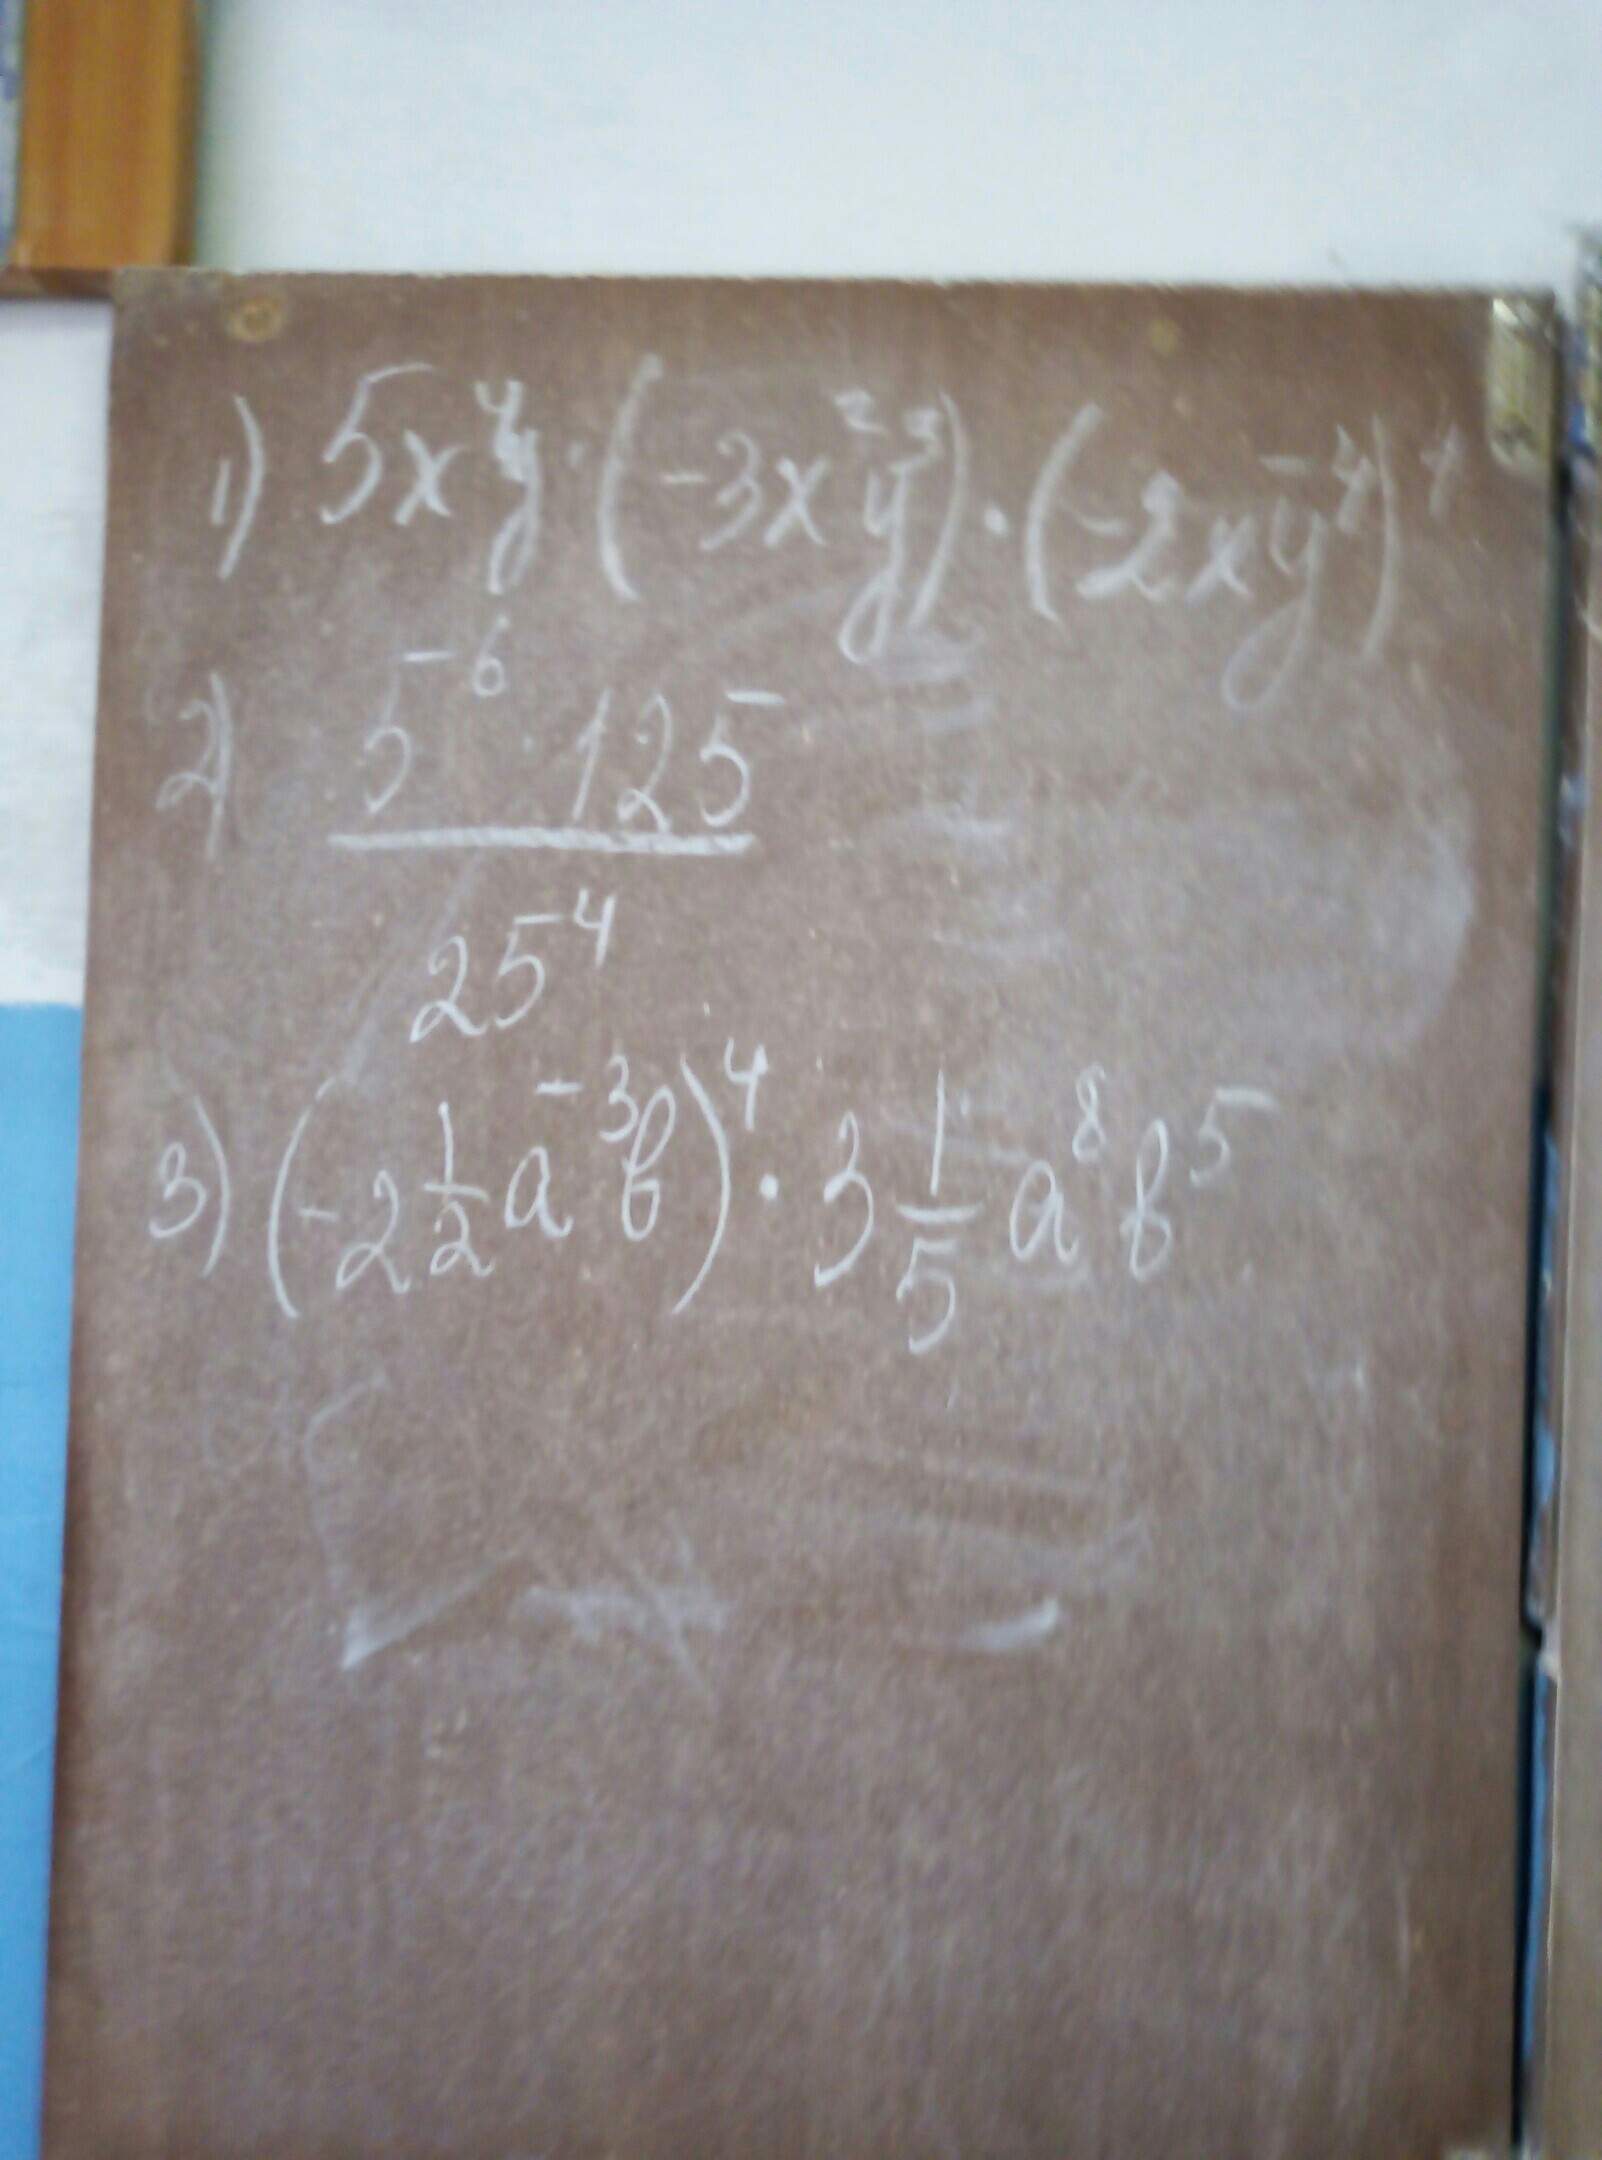 1) 5x⁴y · (-3x²y³) · (-2xy⁻⁴)⁴
2) 5⁻⁶ · 125
25⁴
3) (-2 1/2 a⁻³b)⁴ · 3 1/5 a⁸b⁵